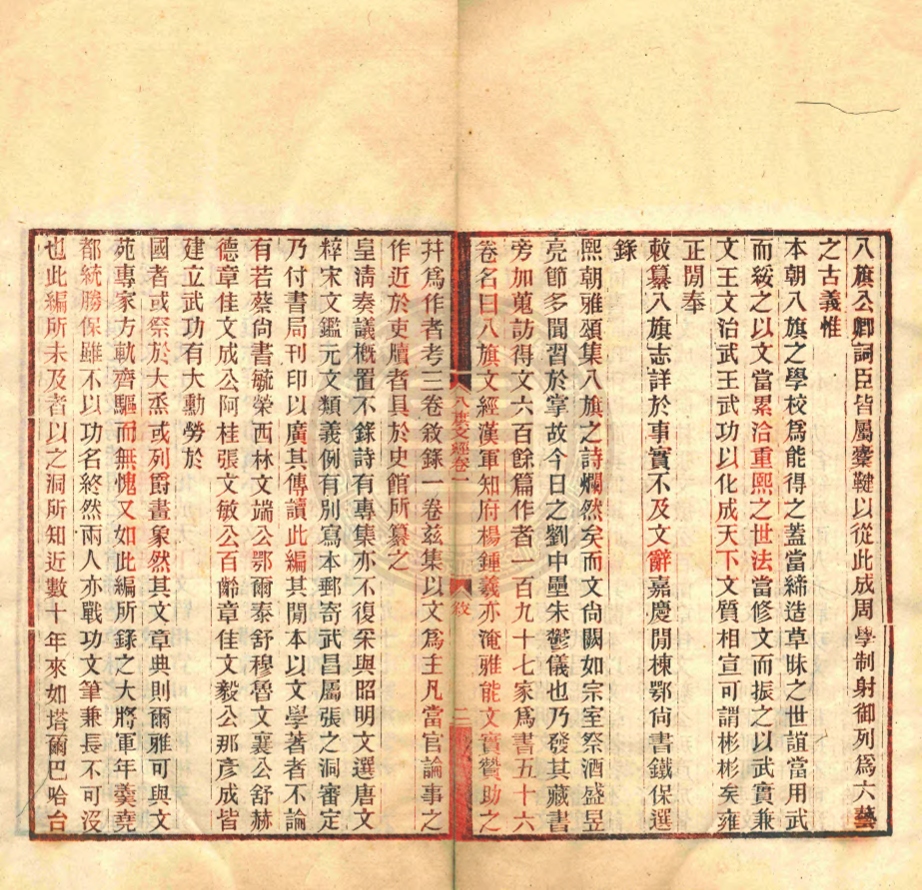 八旗公卿詞臣皆屬櫜鞬以從此成周學制射御列爲六藝
之古義惟
本朝八旗之學校爲能得之蓋當締造草昧之世誼當用武
而綏之以文當累洽重熙之世法當修文而振之以武實兼
文王文治武王武功以化成天下文質相宣可謂彬彬矣雍
正閒奉
敕纂八旗志詳於事實不及文辭嘉慶閒棟鄂尙書鐵保選
錄
熙朝雅頌集八旗之詩爛然矣而文尙闕如宗室祭酒盛昱
亮節多聞習於掌故今日之劉中壘朱鬱儀也乃發其藏書
旁加蒐訪得文六百餘篇作者一百九十七家爲書五十六
卷名曰八旗文經漢軍知府楊鍾羲亦淹雅能文實贊助之
八旗文經卷一
敘
二
幷爲作者考三卷敘錄一卷兹集以文爲主凡當官論事之
作近於吏牘者具於史館所纂之
皇淸奏議槪置不錄詩有專集亦不復采與昭明文選唐文
粹宋文鑑元文類義例有別寫本郵寄武昌屬張之洞審定
乃付書局刊印以廣其傳讀此編其閒本以文學著者不論
有若蔡尙書毓榮西林文端公鄂爾泰舒穆魯文襄公舒赫
德章佳文成公阿桂張文敏公百齡章佳文毅公那彥成皆
建立武功有大勳勞於
國者或祭於大烝或列爵畫象然其文章典則爾雅可與文
苑專家方軌齊驅而無愧又如此編所錄之大將軍年羹堯
都統勝保雖不以功名終然兩人亦戰功文筆兼長不可沒
也此編所未及者以之洞所知近數十年來如塔爾巴哈台